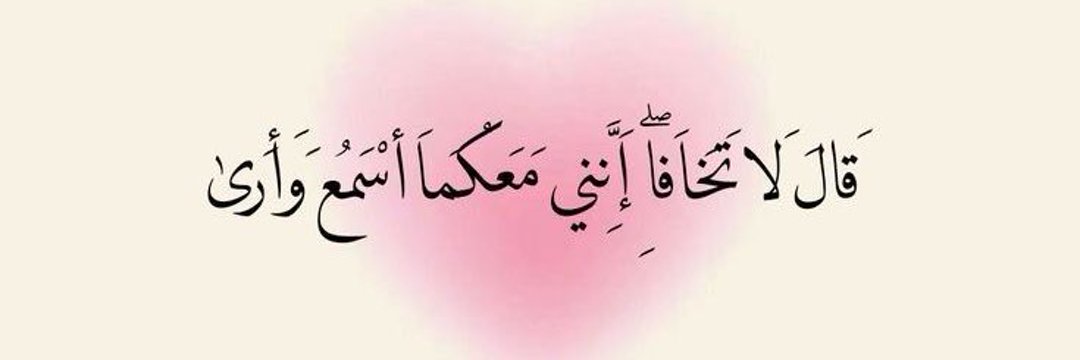 قَالَ لَا تَخَافَا ۖ إِنَّنِي مَعَكُمَا أَسْمَعُ وَأَرَىٰ